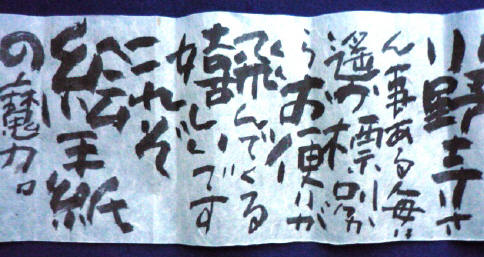 小野寺さ
ん事ある毎に
遥か標別か
らお便りが
飛んでくる
嬉しいです
これぞ
絵手紙
の魔力。